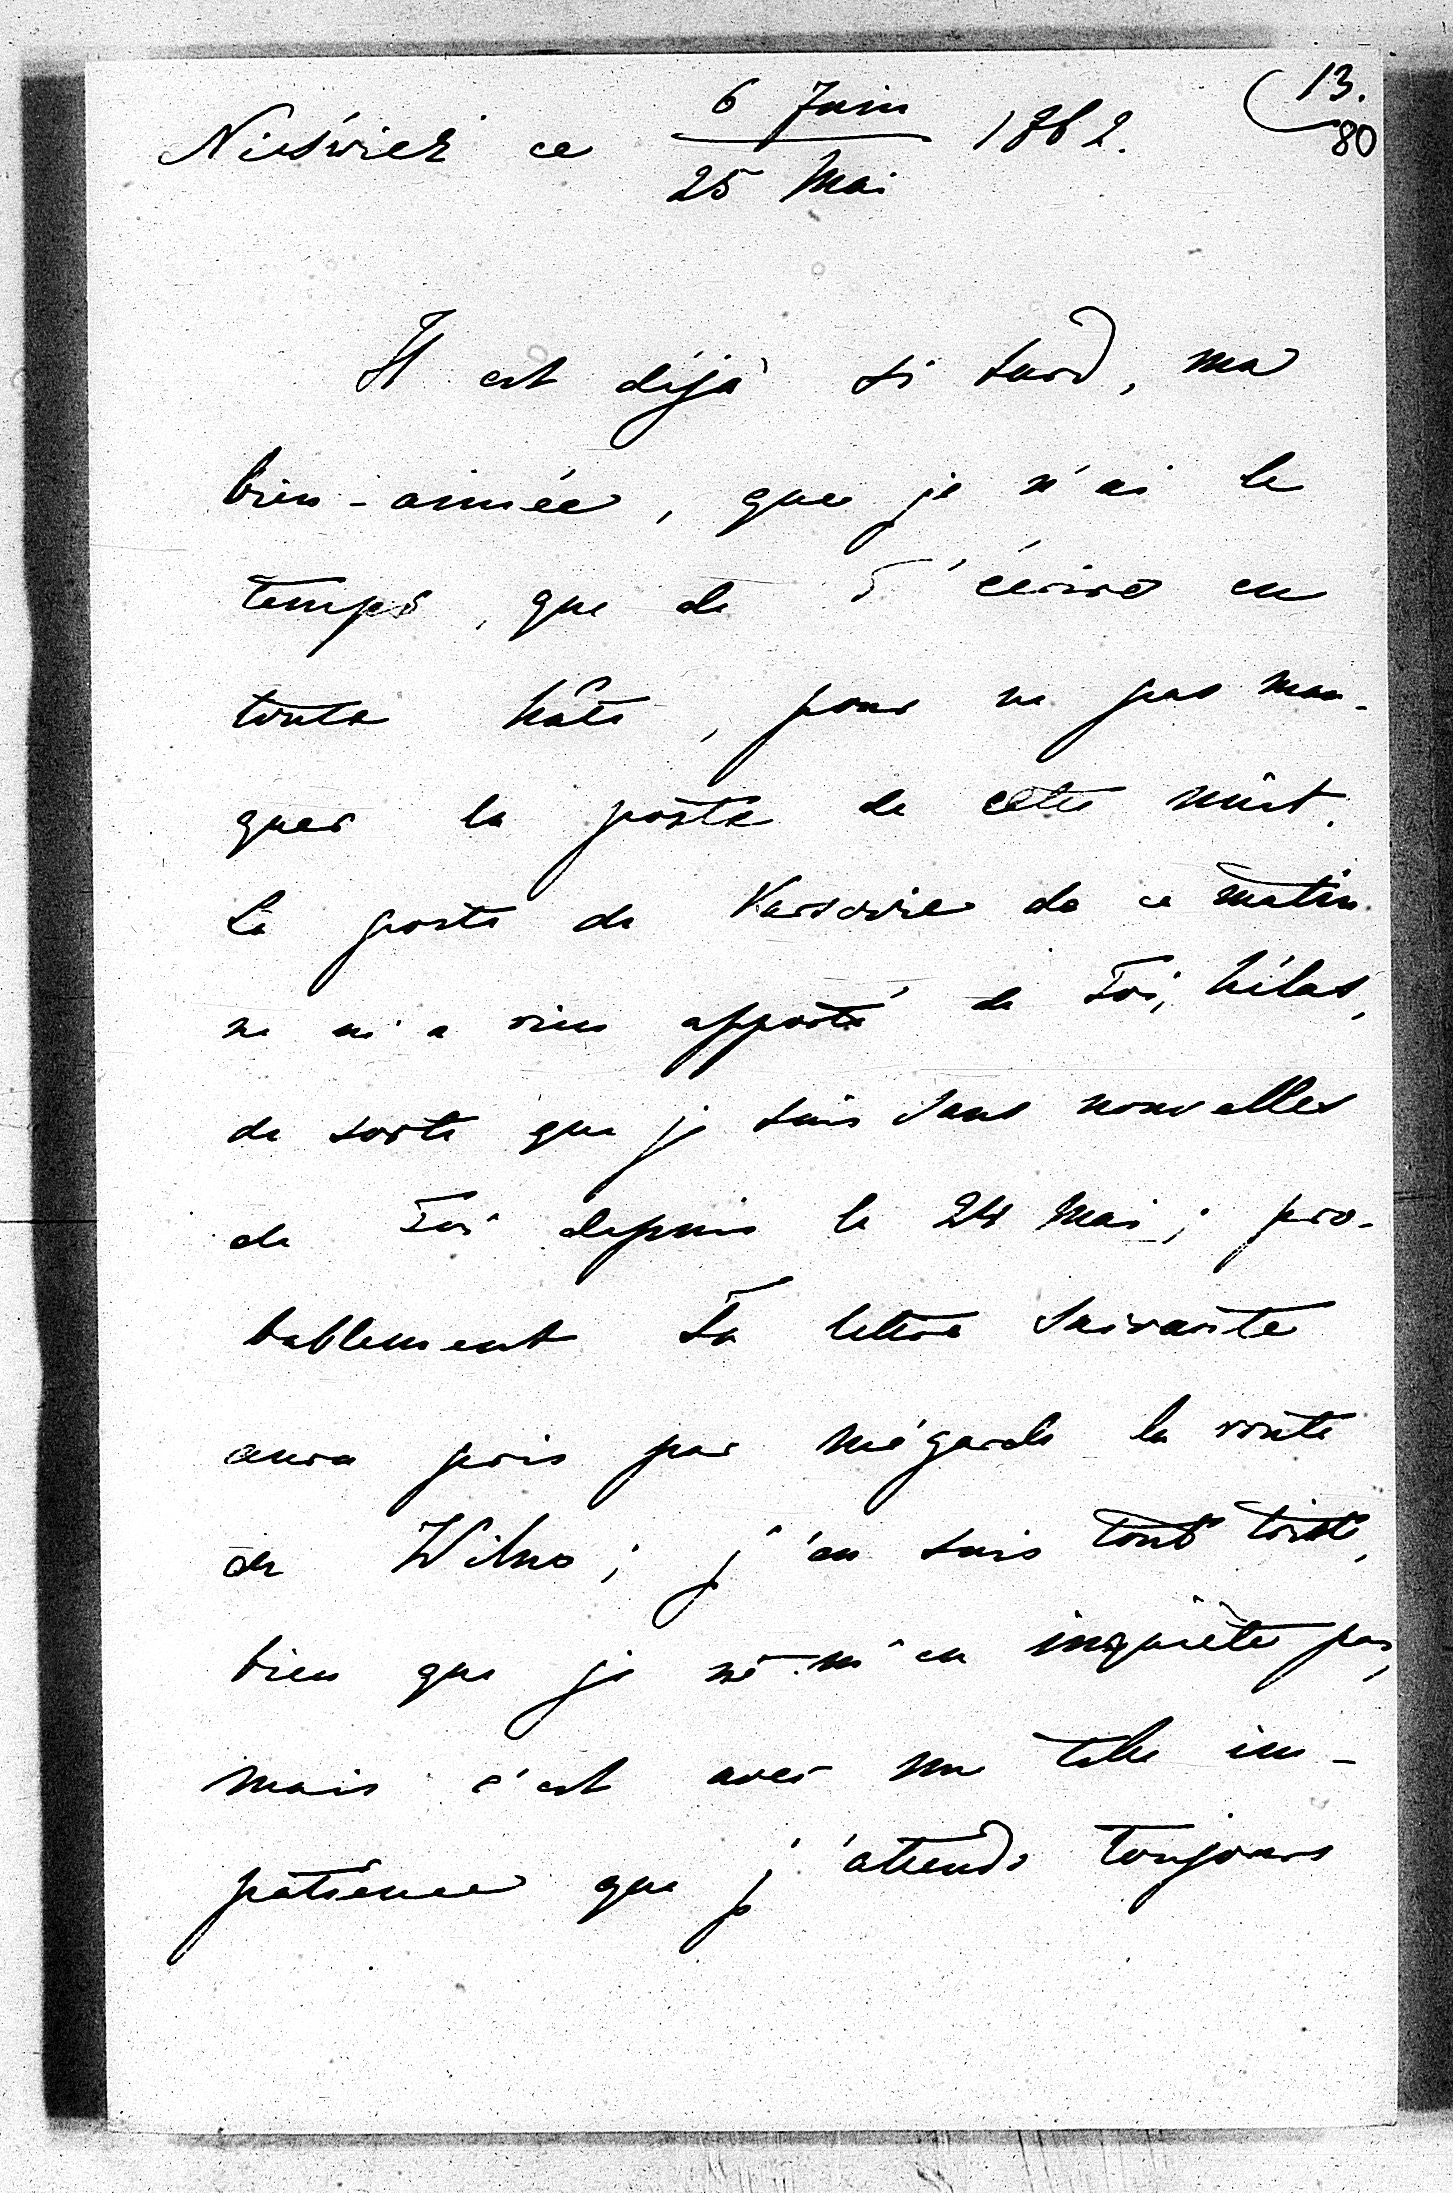 13.
80
Nieśwież ce 6 Juin / 25 Mai 1862.
Il est déjà si tard, ma
bien-aimée, que je n'ai le
temps, que de T'écrire en
toute hâte, pour ne pas man-
quer la poste de cette nuit.
La poste de Varsovie de ce matin
ne m'a rien apporté de Toi, hélas,
de sorte que je suis sans nouvelles
de Toi depuis le 24 Mai; pro-
bablement Ta lettre suivante
aura pris par mégarde la route
de Wilno; j'en suis tout triste,
bien que je ne m'en inquiète pas,
mais c'est avec une telle im-
patience que j'attends toujours